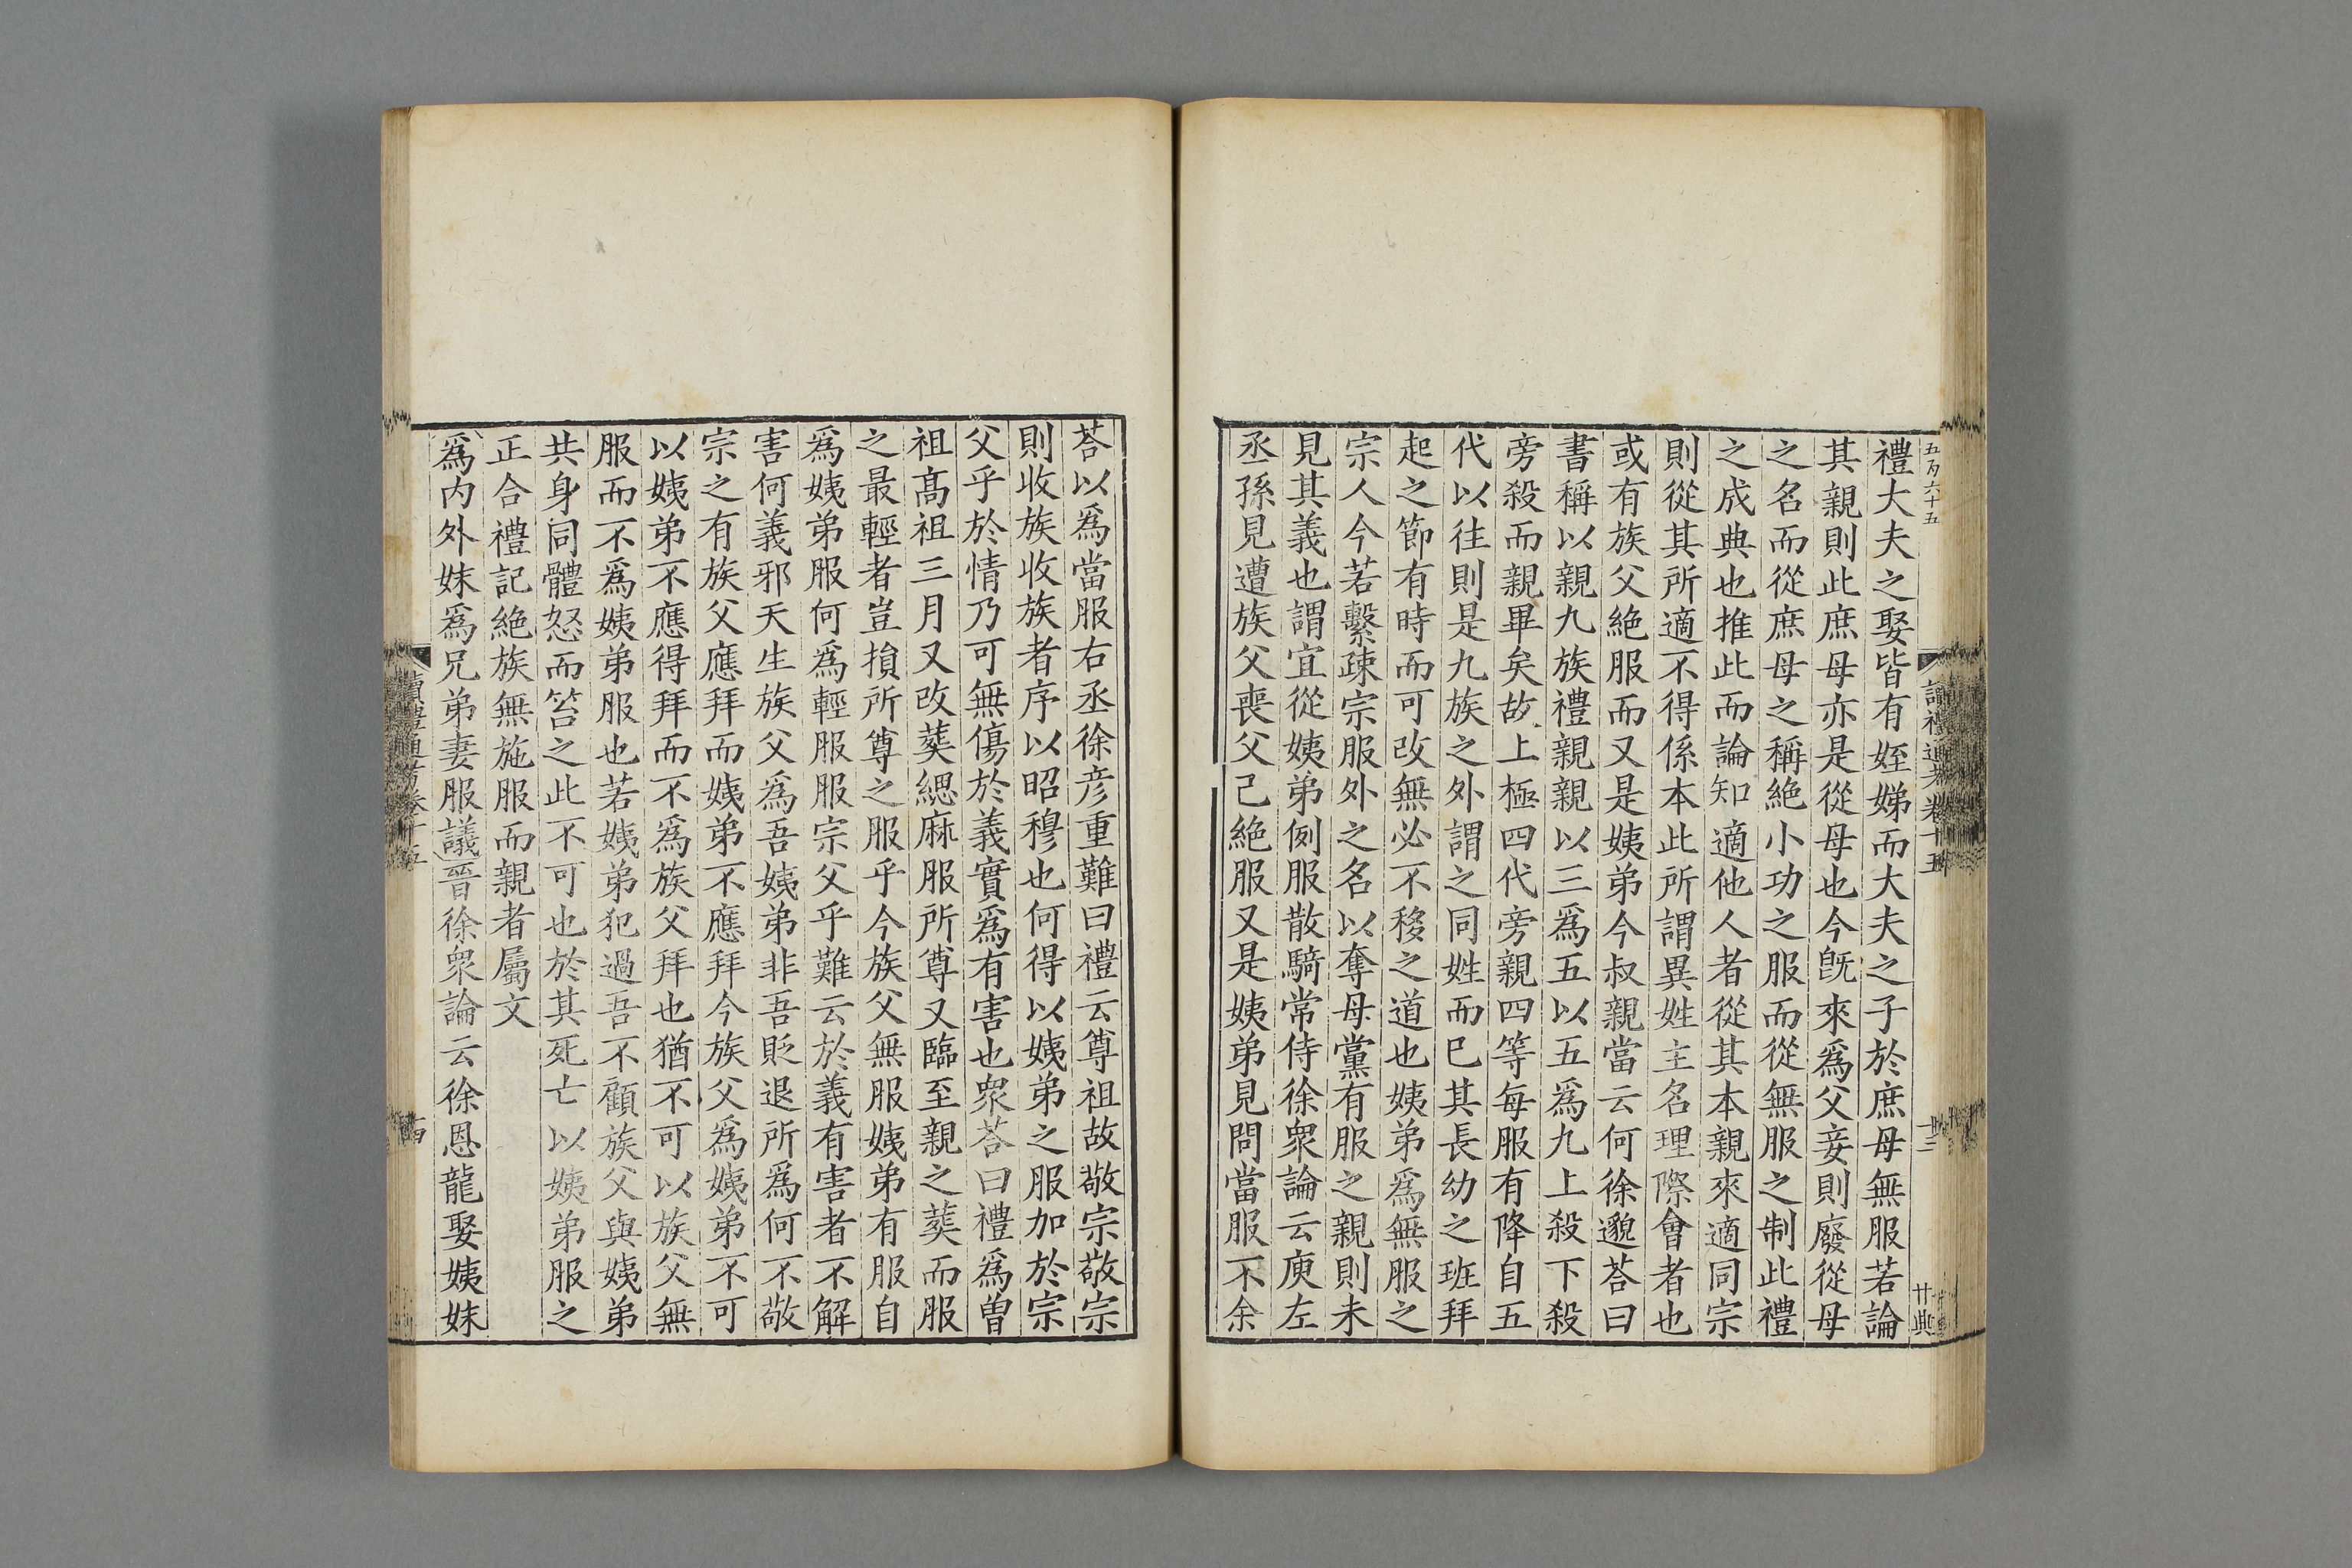 禮大夫之娶皆有姪娣而大夫之子於庶母無服若論
其親則此庶母亦是從母也今旣來爲父妾則廢從母
之名而從庶母之稱絶小功之服而從無服之制此禮
之成典也推此而論知適他人者從其本親來適同宗
則從其所適不得係本此所謂異姓主名理際會者也
或有族父絶服而又是姨弟今叔親當云何徐邈荅曰
書稱以親九族禮親親以三爲五以五爲九上殺下殺
旁殺而親畢矣故上極四代旁親四等每服有降自五
代以往則是九族之外謂之同姓而已其長幼之班拜
起之節有時而可改無必不移之道也姨弟爲無服之
宗人今若繫疎宗服外之名以奪母黨有服之親則未
見其義也謂宜從姨弟例服散騎常侍徐衆論云庾左
丞孫見遭族父喪父己絶服又是姨弟見問當服不余
荅以爲當服右丞徐彦重難曰禮云尊祖故敬宗敬宗
則收族收族者序以昭穆也何得以姨弟之服加於宗
父乎於情乃可無傷於義實爲有害也衆荅曰禮爲曽
祖髙祖三月又改葬緦麻服所尊又臨至親之葬而服
之最輕者豈損所尊之服乎今族父無服姨弟有服自
爲姨弟服何爲輕服服宗父乎難云於義有害者不解
害何義邪天生族父爲吾姨弟非吾貶退所爲何不敬
宗之有族父應拜而姨弟不應拜今族父爲姨弟不可
以姨弟不應得拜而不爲族父拜也猶不可以族父無
服而不爲姨弟服也若姨弟犯過吾不顧族父與姨弟
共身同體怒而笞之此不可也於其死亡以姨弟服之
正合禮記絶族無施服而親者屬文
爲内外妹爲兄弟妻服議晉徐衆論云徐恩龍娶姨妹
五百六十五
讀禮通考卷十五
十三
讀禮通考卷十五
十四